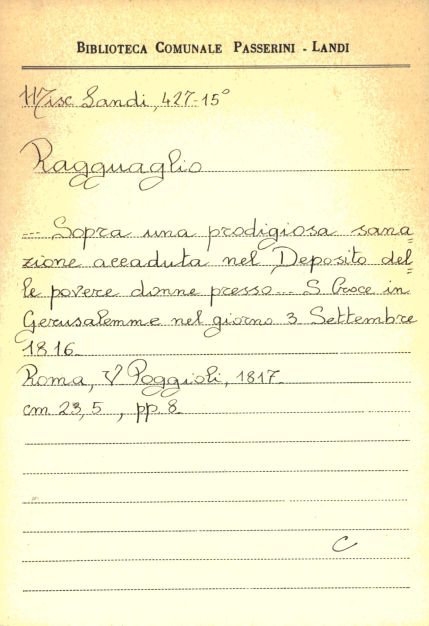 BIBLIOTECA COMUNALE PASSERINI - LANDI
Misc Landi, 427-15°
Ragguaglio
--- Sopra una prodigiosa sana=
zione accaduta nel Deposito del=
le povere donne presso --- S. Croce in
Gerusalemme nel giorno 3 Settembre
1816.
Roma, V Poggioli, 1817.
cm 23,5 , pp. 8.
C